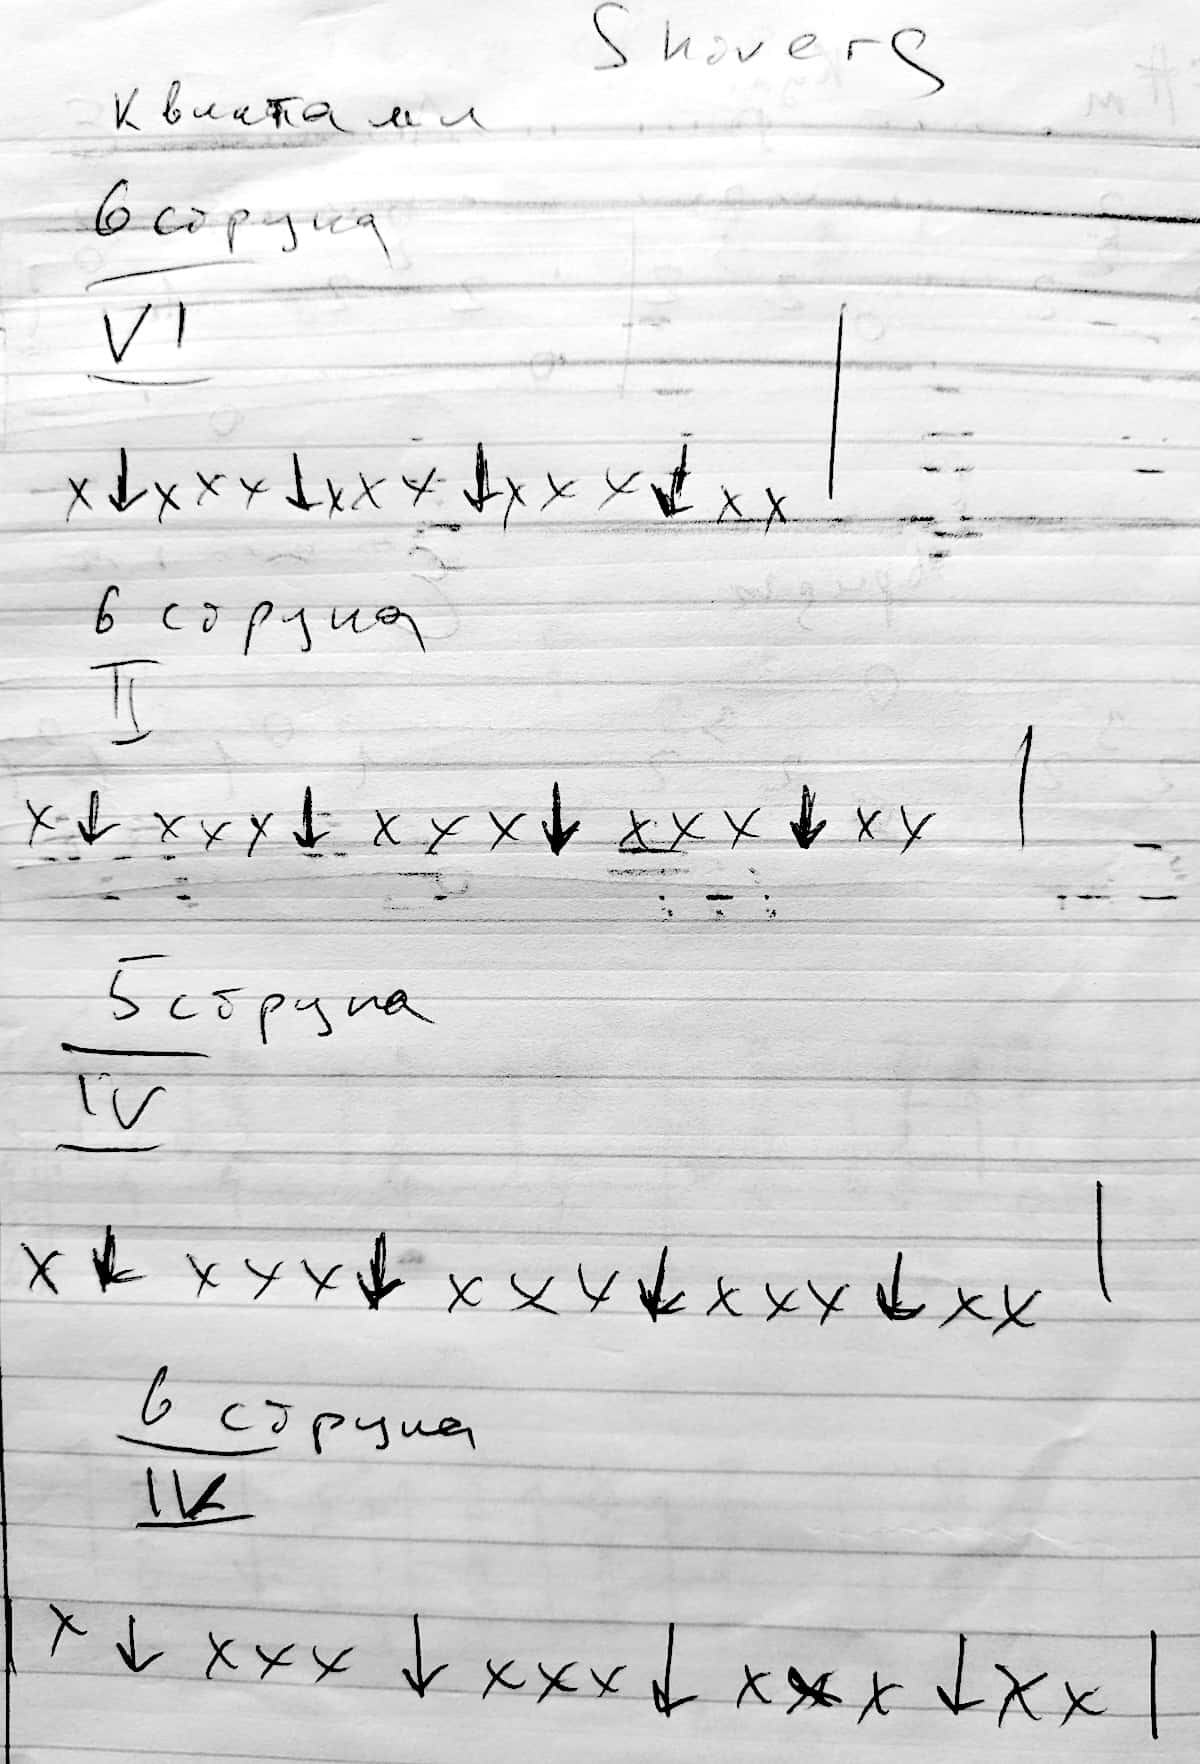 Skovers
Квинтами
6 струна
VI
x ↓ x x x ↓ x x x ↓ x x x ↓ x x |
6 струна
II
x ↓ x x x ↓ x x x ↓ x x x ↓ x x |
5 струна
IV
x ↓ x x x ↓ x x x ↓ x x x ↓ x x |
6 струна
IV
| x ↓ x x x ↓ x x x ↓ x x x ↓ x x |